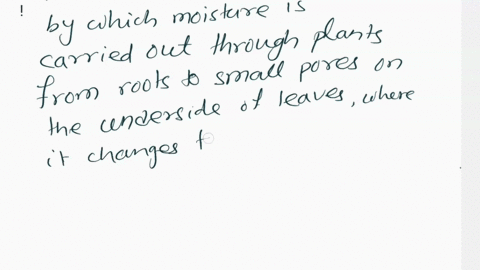 ! by which moisture is
carried out through plants
from roots to small pores on
the underside of leaves, where
it changes t